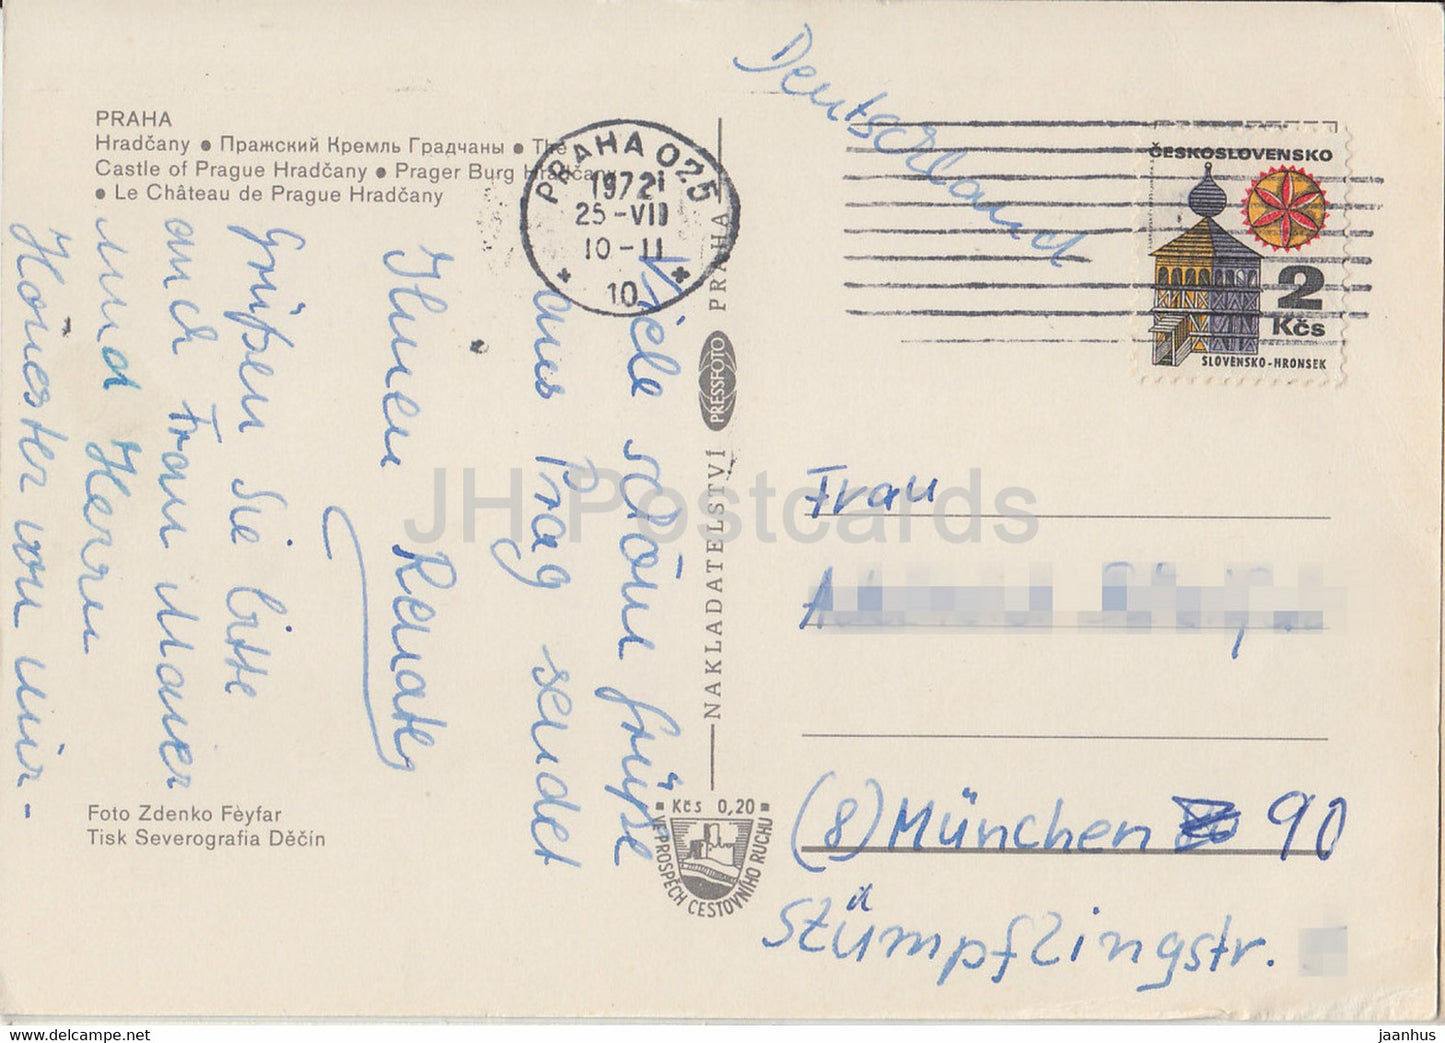 PRAHA
Hradčany • Пражский Кремль Градчаны • The
Castle of Prague Hradčany • Prager Burg Hradčany
• Le Château de Prague Hradčany
PRAHA 025
1972
25-VII
10-11
10
Deutschland
ČESKOSLOVENSKO
2
Kčs
SLOVENSKO-HRONSEK
Viele schöne Grüße
aus Prag sendet
Ihnen Renate
Grüßen Sie bitte
auch Frau Maier
und Herrn
von mir-
NAKLADATELSTVÍ PRESSFOTO PRAHA
Frau
(8) München 90
Stümpflingstr.
Foto Zdenko Fèyfar
Tisk Severografia Děčín
Kčs 0,20
VE PROSPĚCH CESTOVNÍHO RUCHU
JH Postcards
www.delcampe.net
jaanhus